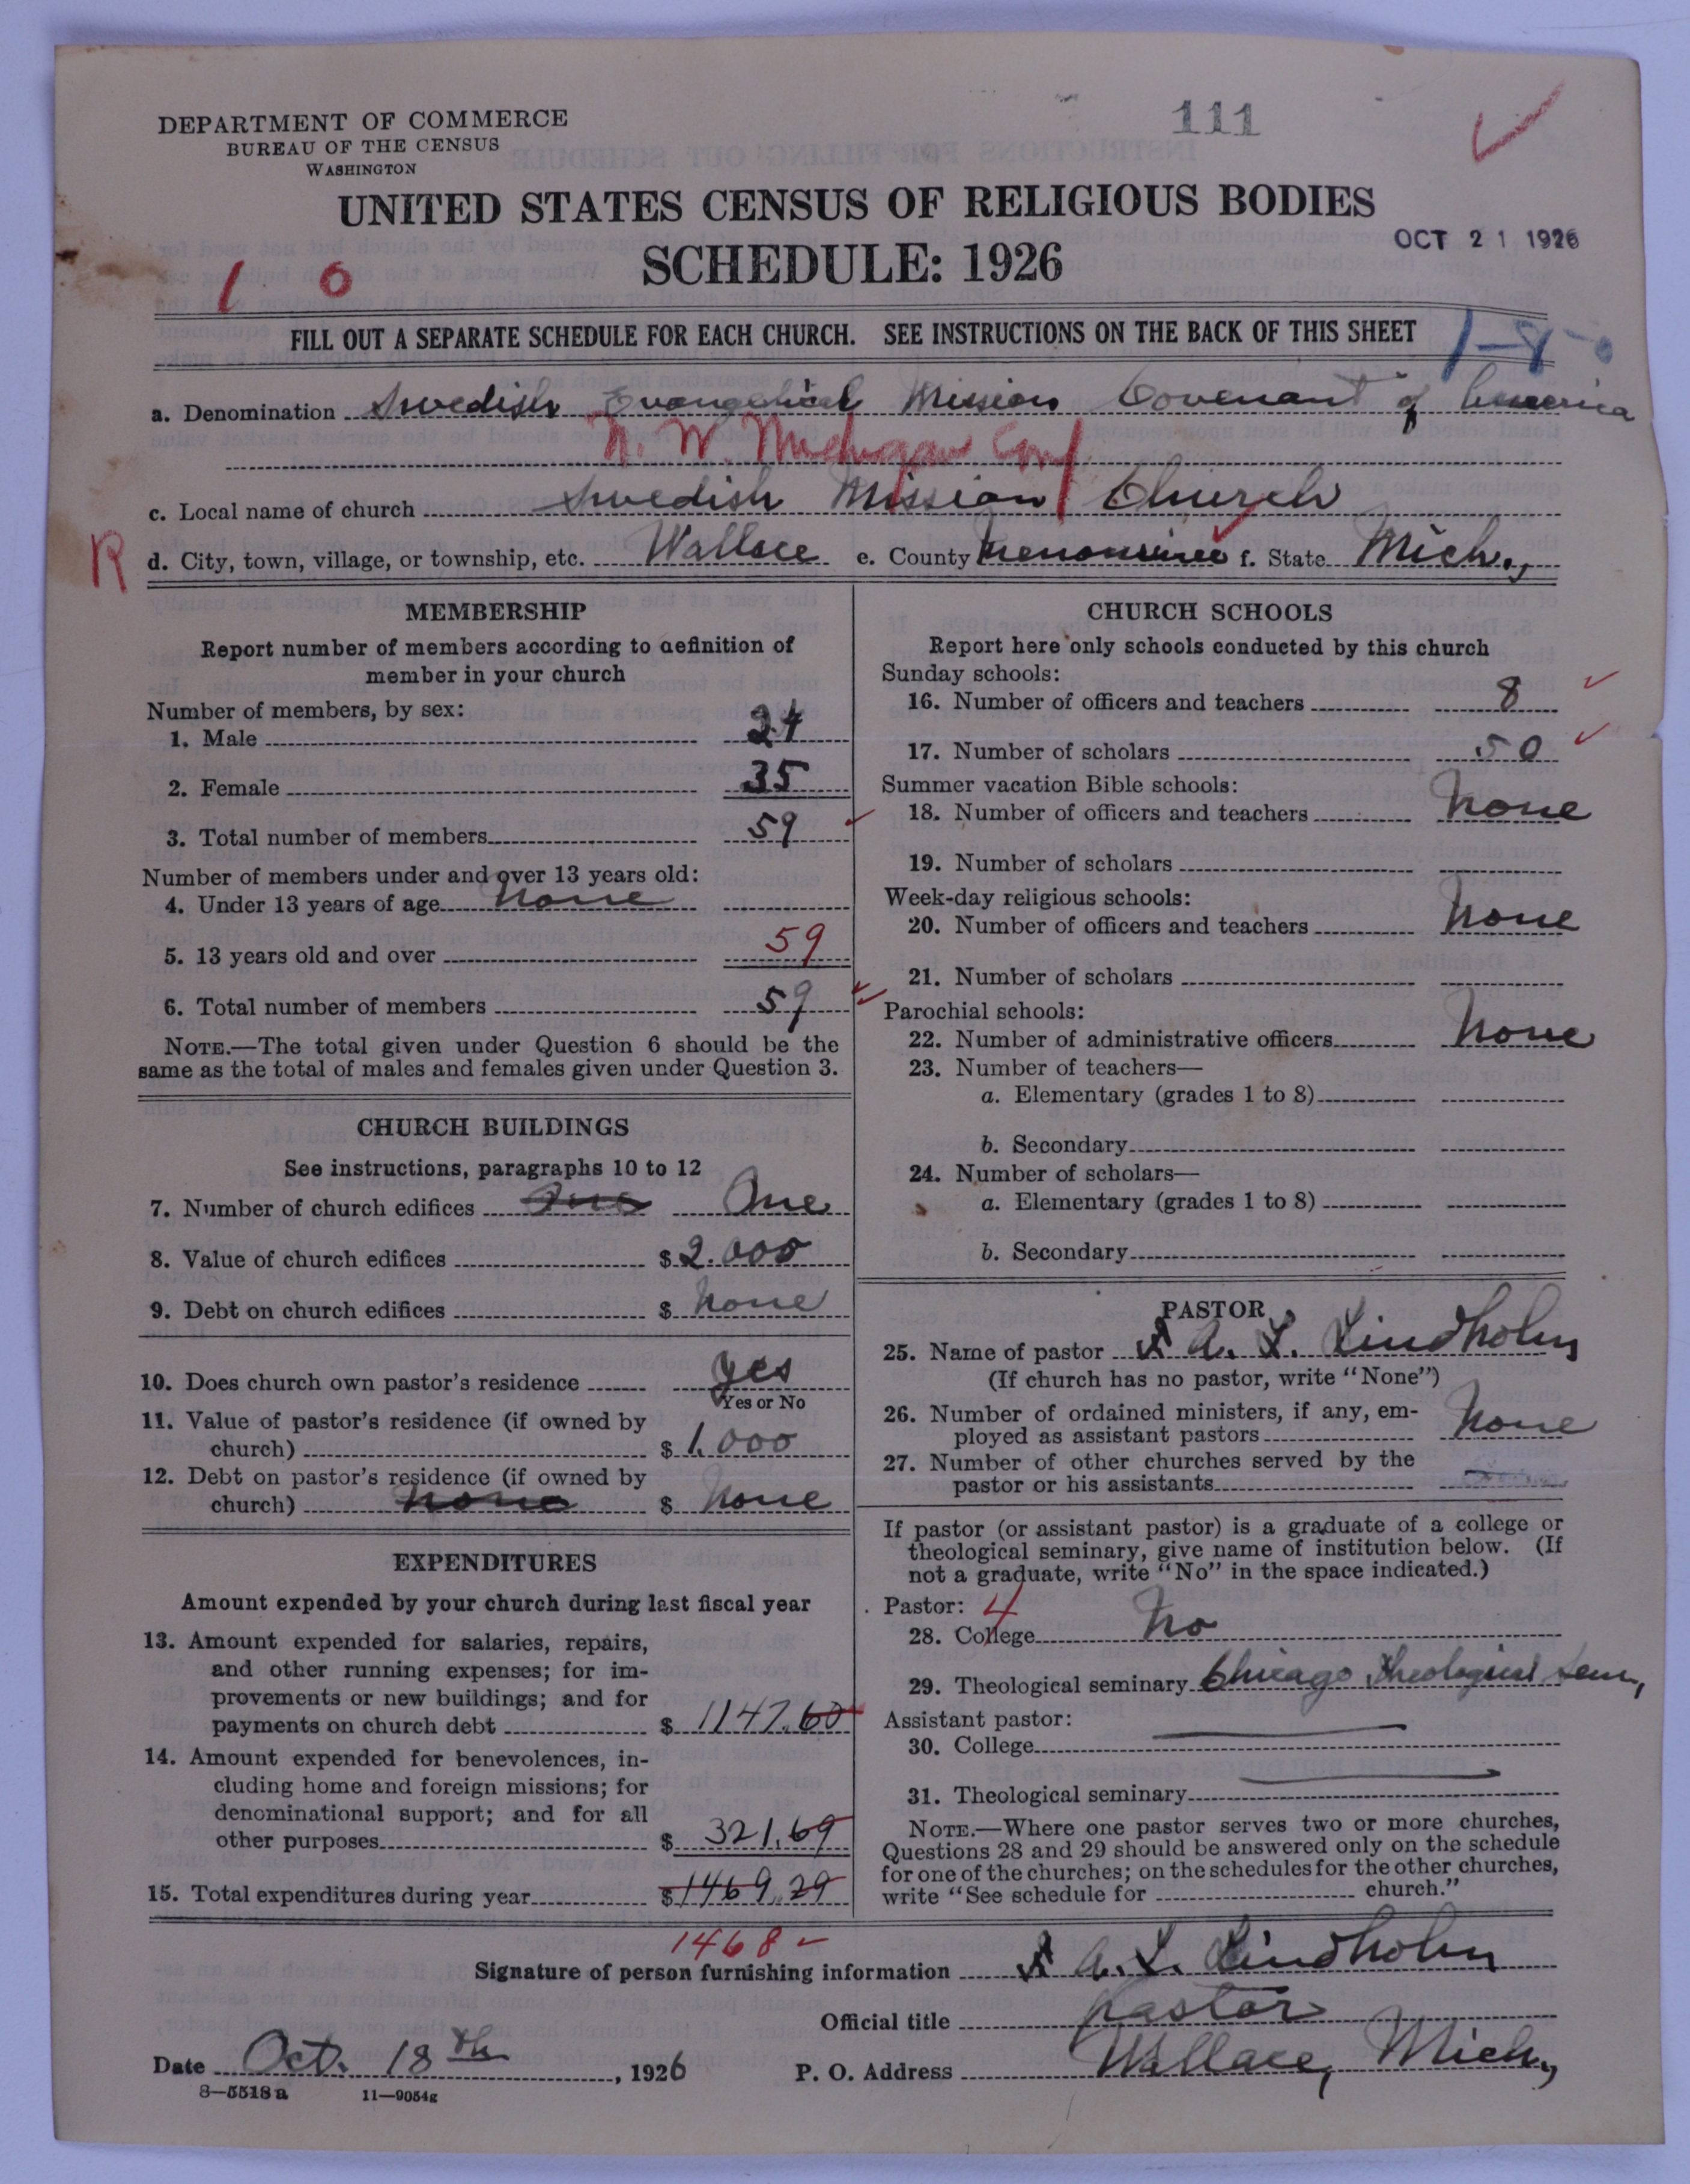 111
DEPARTMENT OF COMMERCE
BUREAU OF THE CENSUS
WASHINGTON
UNITED STATES CENSUS OF RELIGIOUS BODIES
SCHEDULE: 1926
OCT 21 1926
1 0
FILL OUT A SEPARATE SCHEDULE FOR EACH CHURCH. SEE INSTRUCTIONS ON THE BACK OF THIS SHEET
a. Denomination Swedish Evangelical Mission Covenant of America
N. W. Michigan Conf
c. Local name of church Swedish Mission Church
R
d. City, town, village, or township, etc. Wallace e. County Menominee f. State Mich.,
MEMBERSHIP
Report number of members according to definition of
member in your church
Number of members, by sex:
1. Male 24
2. Female 35
3. Total number of members 59
Number of members under and over 13 years old:
4. Under 13 years of age none
5. 13 years old and over 59
6. Total number of members 59
NOTE.—The total given under Question 6 should be the
same as the total of males and females given under Question 3.
CHURCH BUILDINGS
See instructions, paragraphs 10 to 12
7. Number of church edifices One One
8. Value of church edifices $ 2.000
9. Debt on church edifices $ none
10. Does church own pastor's residence yes
Yes or No
11. Value of pastor's residence (if owned by
church) $ 1.000
12. Debt on pastor's residence (if owned by
church) none $ none
EXPENDITURES
Amount expended by your church during last fiscal year
13. Amount expended for salaries, repairs,
and other running expenses; for im-
provements or new buildings; and for
payments on church debt $ 1147.60
14. Amount expended for benevolences, in-
cluding home and foreign missions; for
denominational support; and for all
other purposes $ 321.69
15. Total expenditures during year $ 1469.29
1468
CHURCH SCHOOLS
Report here only schools conducted by this church
Sunday schools:
16. Number of officers and teachers 8
17. Number of scholars 50
Summer vacation Bible schools:
18. Number of officers and teachers none
19. Number of scholars
Week-day religious schools:
20. Number of officers and teachers none
21. Number of scholars
Parochial schools:
22. Number of administrative officers none
23. Number of teachers—
a. Elementary (grades 1 to 8)
b. Secondary
24. Number of scholars—
a. Elementary (grades 1 to 8)
b. Secondary
PASTOR
25. Name of pastor A. L. Lindholm
(If church has no pastor, write "None")
26. Number of ordained ministers, if any, em-
ployed as assistant pastors none
27. Number of other churches served by the
pastor or his assistants
If pastor (or assistant pastor) is a graduate of a college or
theological seminary, give name of institution below. (If
not a graduate, write "No" in the space indicated.)
Pastor: 4
28. College no
29. Theological seminary Chicago Theological Sem,
Assistant pastor:
30. College
31. Theological seminary
NOTE.—Where one pastor serves two or more churches,
Questions 28 and 29 should be answered only on the schedule
for one of the churches; on the schedules for the other churches,
write "See schedule for church."
Signature of person furnishing information A. L. Lindholm
Official title pastor
Date Oct. 18th, 1926 P. O. Address Wallace, Mich.,
8—5518a 11—9054g